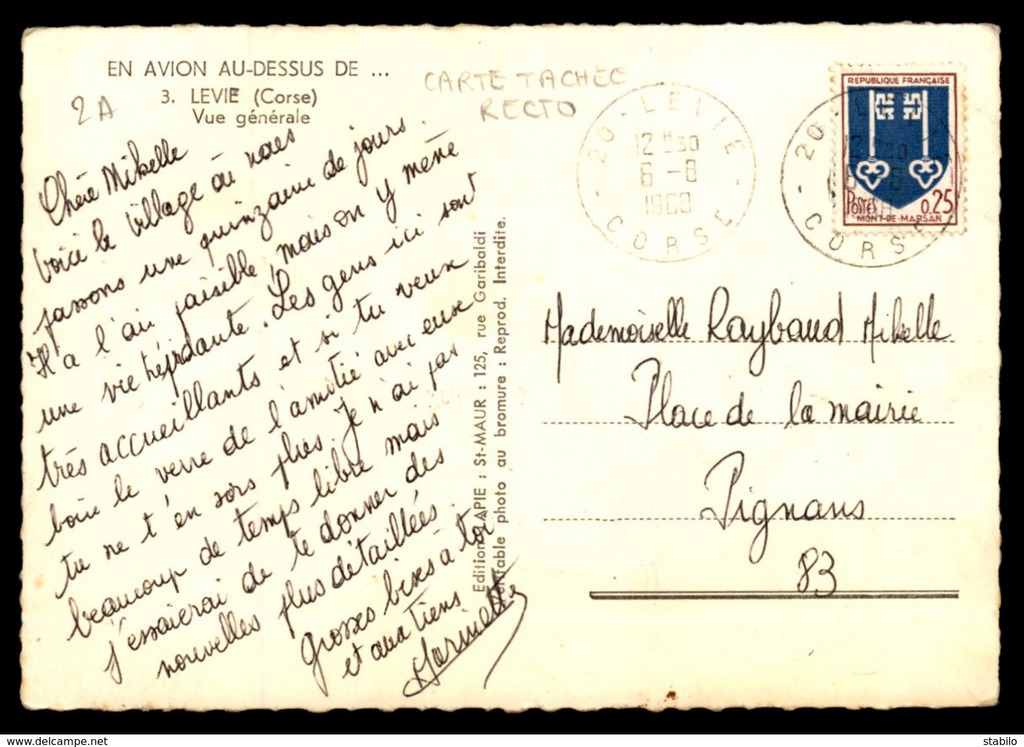 EN AVION AU-DESSUS DE ...
3. LEVIE (Corse)
Vue générale
2A
CARTE TACHEE
RECTO
Chère Mikelle
Voici le village où nous
passons une quinzaine de jours.
Il a l'air paisible, mais on y mène
une vie trépidante. Les gens ici sont
très accueillants et si tu veux
boire le verre de l'amitié avec eux
tu ne t'en sors plus. Je n'ai pas
beaucoup de temps libre mais
j'essaierai de te donner des
nouvelles plus détaillées.
Grosses bises à toi
et aux tiens
Editions LAPIE : St-MAUR : 125, rue Garibaldi
Véritable photo au bromure : Reprod. Interdite.
20 - LEVIE
12 H 30
6 - 8
CORSE
20 - 
CORSE
REPUBLIQUE FRANÇAISE
POSTES 0,25
MONT-DE-MARSAN
Mademoiselle Raybaud Mikelle
Place de la mairie
Pignans
83
stabilo